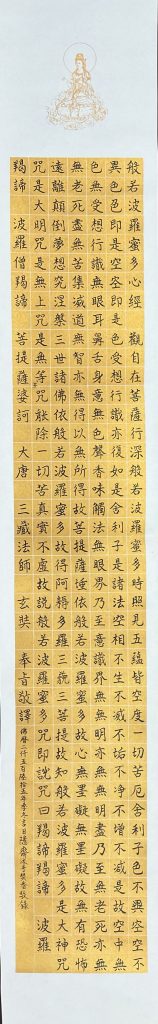 般若波羅蜜多心經 觀自在菩薩行深般若波羅蜜多時照見五蘊皆空度一切苦厄舍利子色不異空空不
異色色即是空空即是色受想行識亦復如是舍利子是諸法空相不生不滅不垢不淨不增不減是故空中無
色無受想行識無眼耳鼻舌身意無色聲香味觸法無眼界乃至無意識界無無明亦無無明盡乃至無老死亦
無老死盡無苦集滅道無智亦無得以無所得故菩提薩埵依般若波羅蜜多故心無罣礙無罣礙故無有恐怖
遠離顛倒夢想究竟涅槃三世諸佛依般若波羅蜜多故得阿耨多羅三藐三菩提故知般若波羅蜜多是大神
咒是大明咒是無上咒是無等等咒能除一切苦真實不虛故說般若波羅蜜多咒即說咒曰羯諦羯諦 波羅
羯諦 波羅僧羯諦 菩提薩婆訶 大唐 三藏法師 玄奘 奉旨敬譯 佛曆二仟五百陸拾五年 沐手焚香敬錄